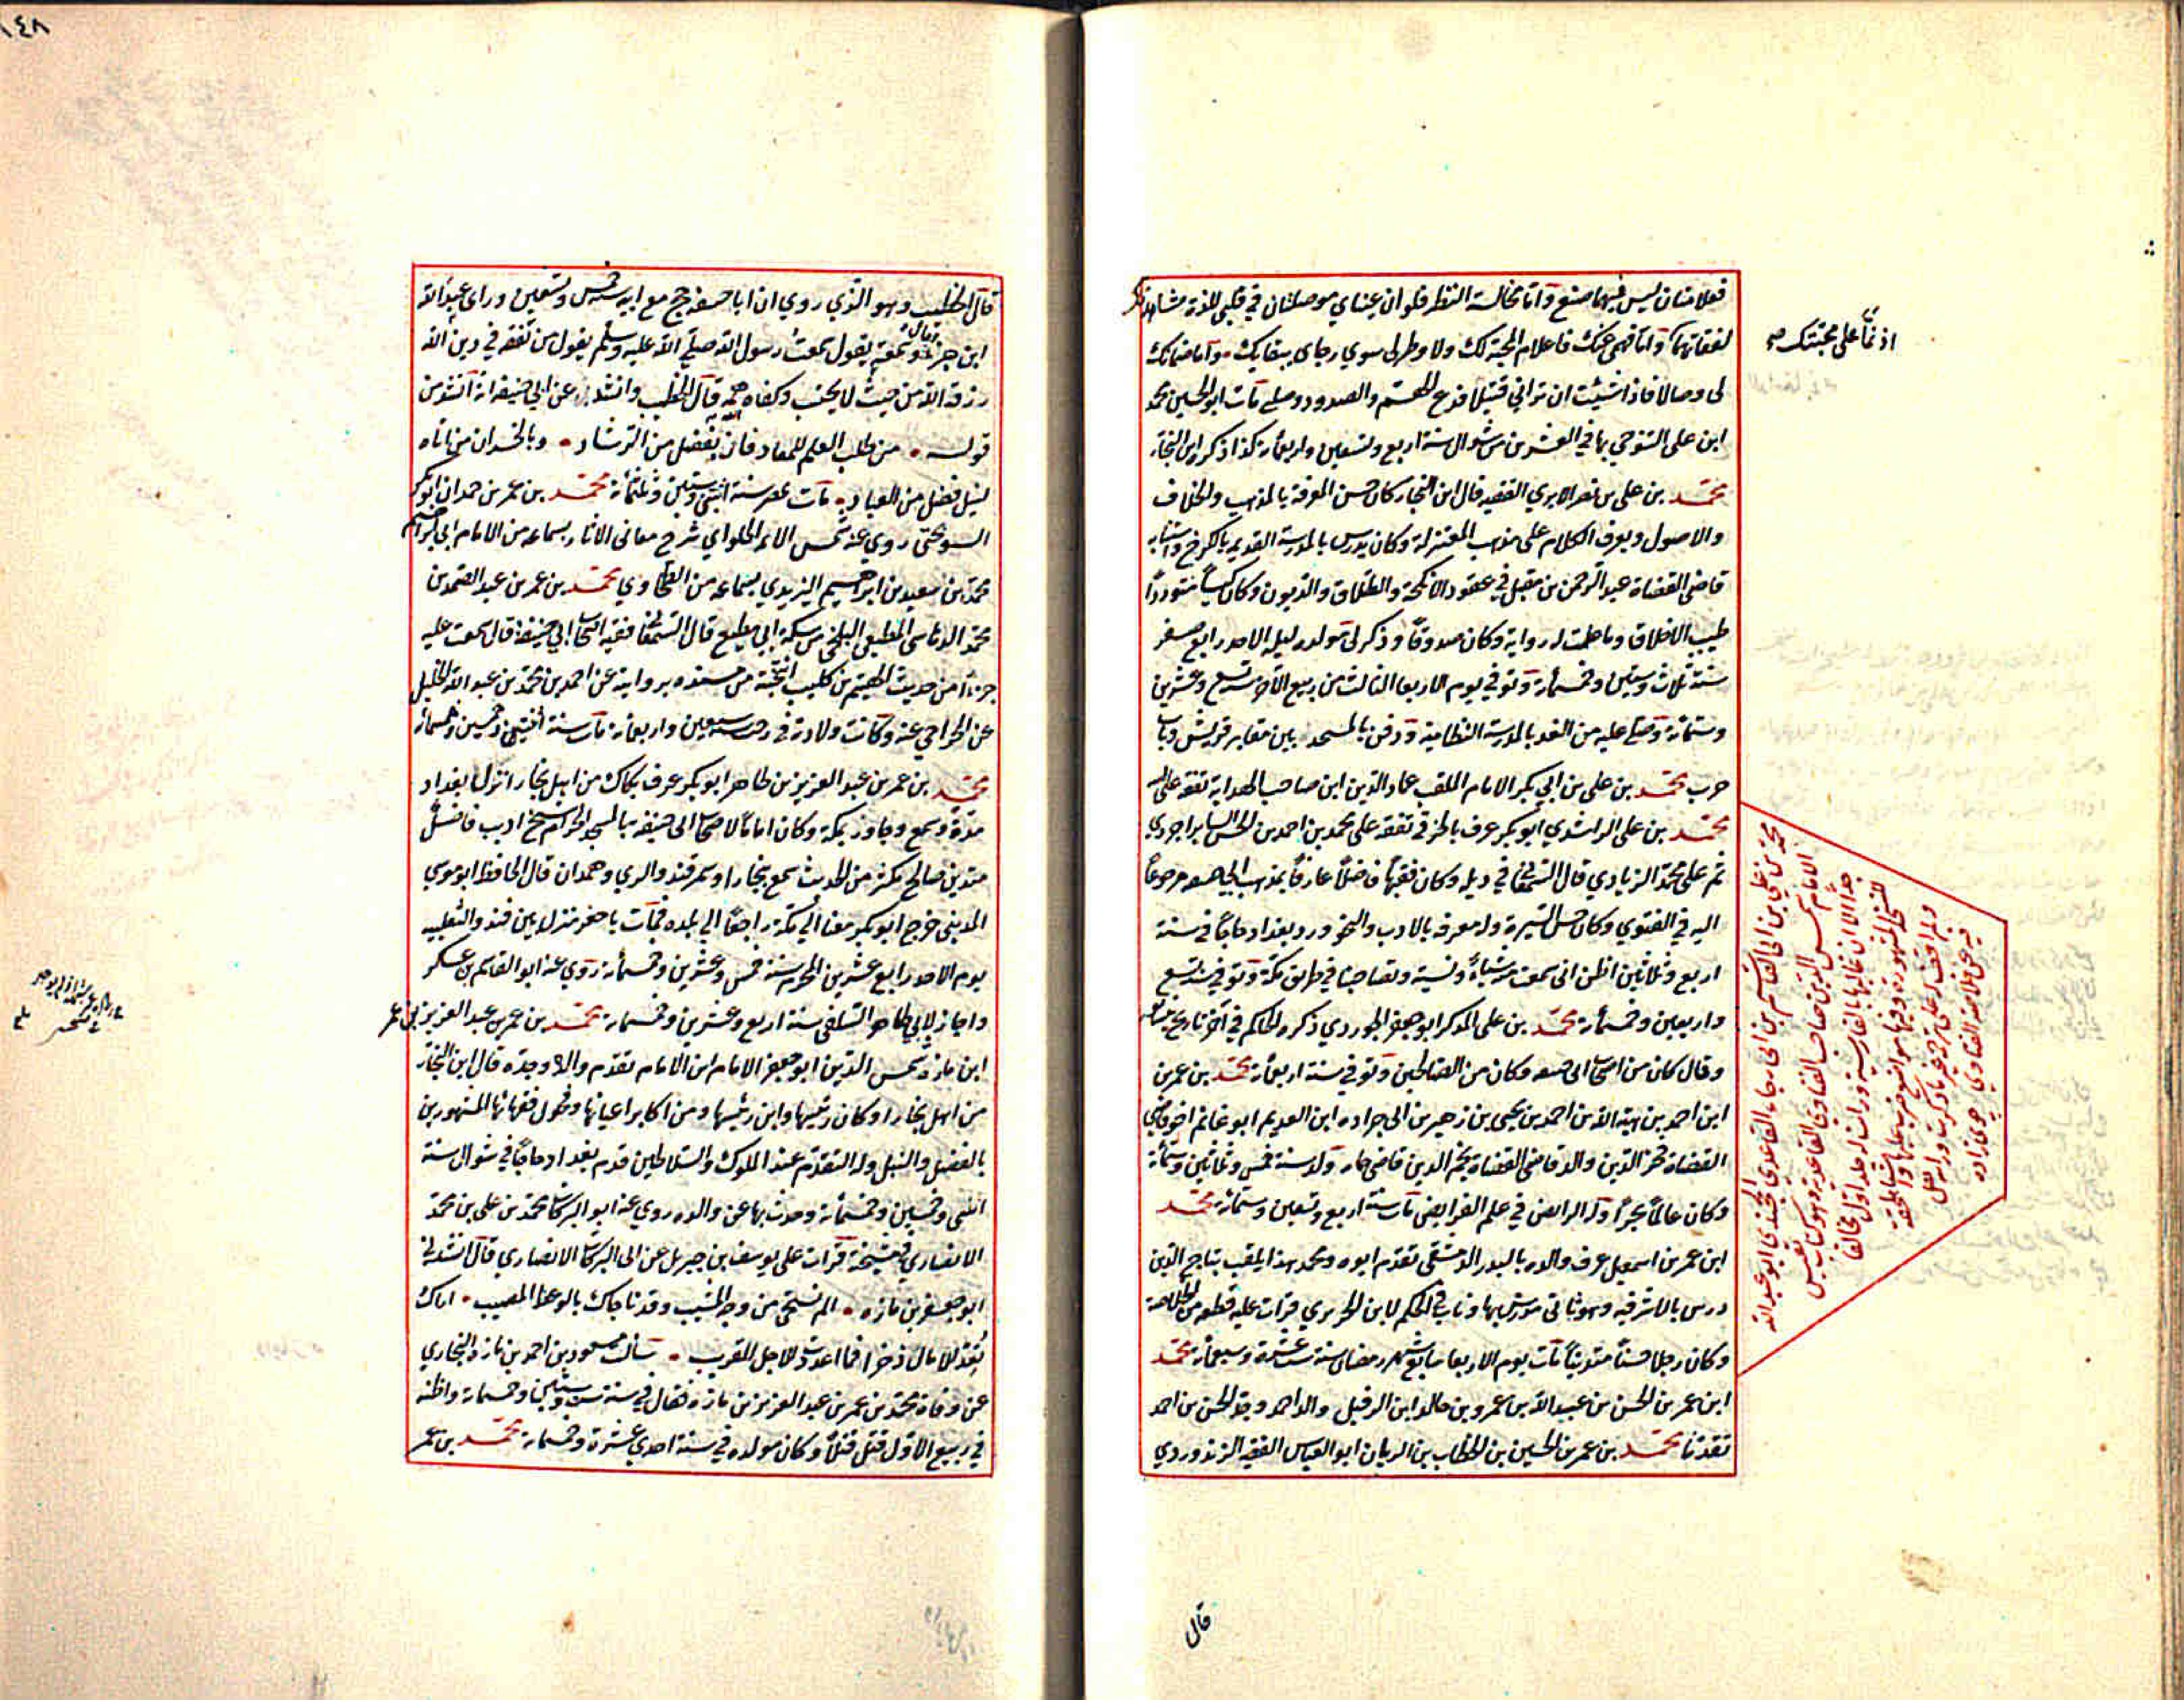 فعلامتان ليس فيهما صنع وأما مخالسة النظر فلو ان عيناي موصلتان في قلبي للذة مشاهدتك
لفقأتهما وأما فهمي عنك فاعلام المحبة لك ولا وطر لي سوي رجاي ببقايك وأما ضمانك
لي وصالا فاذا شئت ان تراني قتيلا فدع الهم والصدود وصلي مات ابو الحسين محمد
ابن علي التنوخي بها في العشرين من شوال سنة اربع وتسعين واربعمائة كذا ذكر ابن النجار
محمد بن علي بن نصر الابري الفقيه قال ابن النجار كان حسن المعرفة بالمذهب والخلاف
والاصول ويعرف الكلام على مذهب المعتزلة وكان يدرس بالمدرسة القديم بالكرخ واستنابه
قاضي القضاة عبد الرحمن بن مقبل في عقود الانكحة والطلاق والديون وكان كيسا متوددا
طيب الاخلاق وما علمت له رواية وكان صدوقا وذكر لي مولده ليلة الاحد رابع صفر
سنة ثلاث وستين وخمسمائة وتوفي يوم الاربعا الثالث من ربيع الآخر سنة تسع وعشرين
وستمائة وصلي عليه من الغد بالمدرسة النظامية ودفن بالمسجد بين مقابر قريش وباب
حرب محمد بن علي بن ابي بكر الامام الملقب عماد الدين ابن صاحب الهداية تفقه على ابيه
محمد بن علي الراشدي ابو بكر عرف بالحرفي تفقه على محمد بن احمد بن الحسن
ثم على محمد الزيادي قال السمعاني في ذيله وكان فقيها فاضلا عارفا بمذهب ابي حنيفة مرجوعا
اليه في الفتوي وكان حسن السيرة وله معرفة بالادب والنحو ورد بغداد حاجا في سنة
اربع وثلاثين اظن اني سمعت منه شيئا ونسيته وتصاحبنا في طريق مكة وتوفي سنة تسع
واربعين وخمسمائة محمد بن علي المذكر ابو جعفر الجوردي ذكره الحاكم في آخر تاريخ نيسابور
وقال كان من اصحاب ابي حنيفة وكان من الصالحين وتوفي سنة اربعمائة محمد بن عمر بن
ابن احمد بن هبة الله بن احمد بن يحيى بن زهير بن ابي جرادة ابن العديم ابو غانم اخو قاضي
القضاة فخر الدين والد قاضي القضاة نجم الدين قاضي حماه ولد سنة خمس وثمانين وستمائة
وكان عالما بحرا وله الرائض في علم الفرايض مات سنة اربع وتسعين وستمائة محمد
ابن عمر بن اسمعيل عرف والده بالبدر الدمشقي تقدم ابوه ومحمد هذا يلقب بتاج الدين
درس بالاشرفية وهو ثاني مدرس بها وناب في الحكم لابن الحريري قرات عليه قطعة من الخلاصة
وكان رجلا حسنا متدينا مات يوم الاربعا سابع شهر رمضان سنة ست عشرة وسبعمائة محمد
ابن عمر بن الحسن بن عبيد الله بن عمرو بن خالد ابن الرفيل والد احمد وجد الحسن بن احمد
تقدما محمد بن عمر بن الحسين بن الخطاب بن الريان ابو العباس الفقيه الزندوردي
اذ نما على محبتك صح
محمد بن علي بن ابي القاسم بن ابي رجاء القاعدي الخجندي ابو عبد الله
الامام شمس الدين صاحب الفتاوى القاعدية وهو كتاب نفيس
جدا الا ان غالبها بالفارسية ورأيت له مجلد اول مخالفا
للنسخ المشهورة
جوي زاده
قال
١٤٨
قال الخطيب وهو الذي روي ان ابا حنيفة حج مع ابيه سنة خمس وتسعين وراي عبد الله
ابن جزء وسمعه يقول سمعت رسول الله صلى الله عليه وسلم يقول من تفقه في دين الله
رزقه الله من حيث لا يحتسب وكفاه همه قال الخطيب وانشد عن ابي حنيفة انه انشد من
قوله من طلب العلم للمعاد فاز بفضل من الرشاد وبالخسران من اتاه
لنيل فضل من العباد مات بمصر سنة اثنتين وستين وثلثمائة محمد بن عمر بن حمدان ابو بكر
روي عنه شمس الائمة الحلواي شرح معاني الاثار بسماعه من الامام ابي ابراهيم
محمد بن سعيد بن ابراهيم اليزيدي بسماعه من الطحاوي محمد بن عمر بن عبد الصمد بن
محمد المطيعي البلخي من سكة ابي مطيع قال السمعاني فقيه اصحاب ابي حنيفة قال سمعت عليه
جزءا من حديث الهيثم بن كليب انتخبه من مسنده بروايته عن احمد بن محمد بن عبد الله الخليل
عن الخزاعي عنه وكانت ولادته في سنة سبعين واربعمائة مات سنة اثنتين وخمسين وخمسمائة
محمد بن عمر بن عبد العزيز بن طاهر ابو بكر عرف بكاك من اهل بخارا نزل بغداد
مدة وسمع وجاور بمكة وكان اماما لاصحاب ابي حنيفة بالمسجد الحرام شيخ اديب فاضل
متدين صالح مكثر من الحديث سمع ببخارا وسمرقند والري وهمدان قال الحافظ ابو موسي
المديني خرج ابو بكر معنا الي مكة راجعا الي بلده فمات باجفر منزل بين فيد والثعلبية
يوم الاحد رابع عشرين المحرم سنة خمس وعشرين وخمسمائة روي عنه ابو القاسم بن عسكر
واجاز لابي طاهر السلفي سنة اربع وعشرين وخمسمائة محمد بن عمر بن عبد العزيز بن عمر
ابن مازه شمس الدين ابو جعفر الامام ابن الامام تقدم والده وجده قال ابن النجار
من اهل بخارا وكان رئيسها وابن رئيسها ومن اكابر اعيانها وفحول فقهائها المشهورين
بالفضل والنبل وله التقدم عند الملوك والسلاطين قدم بغداد حاجا في شوال سنة
اثنتي وخمسين وخمسمائة وحدث بها عن والده روي عنه ابو البركات محمد بن علي بن محمد
الانصاري في مشيخته قرات على يوسف بن جبريل عن ابي البركات الانصاري قال انشدني
ابو جعفر بن مازه الم تستحي من وجه المشيب وقد ناجاك بالوعظ المصيب اراك
تعد للامال ذخرا فما اعددت للاجل القريب سألت مسعود بن احمد بن مازه البخاري
عن وفاة محمد بن عمر بن عبد العزيز بن مازه فقال في سنة ست وستين وخمسمائة واظنه
في ربيع الاول قتل قتلا وكان مولده في سنة احدي عشرة وخمسمائة محمد بن عمر